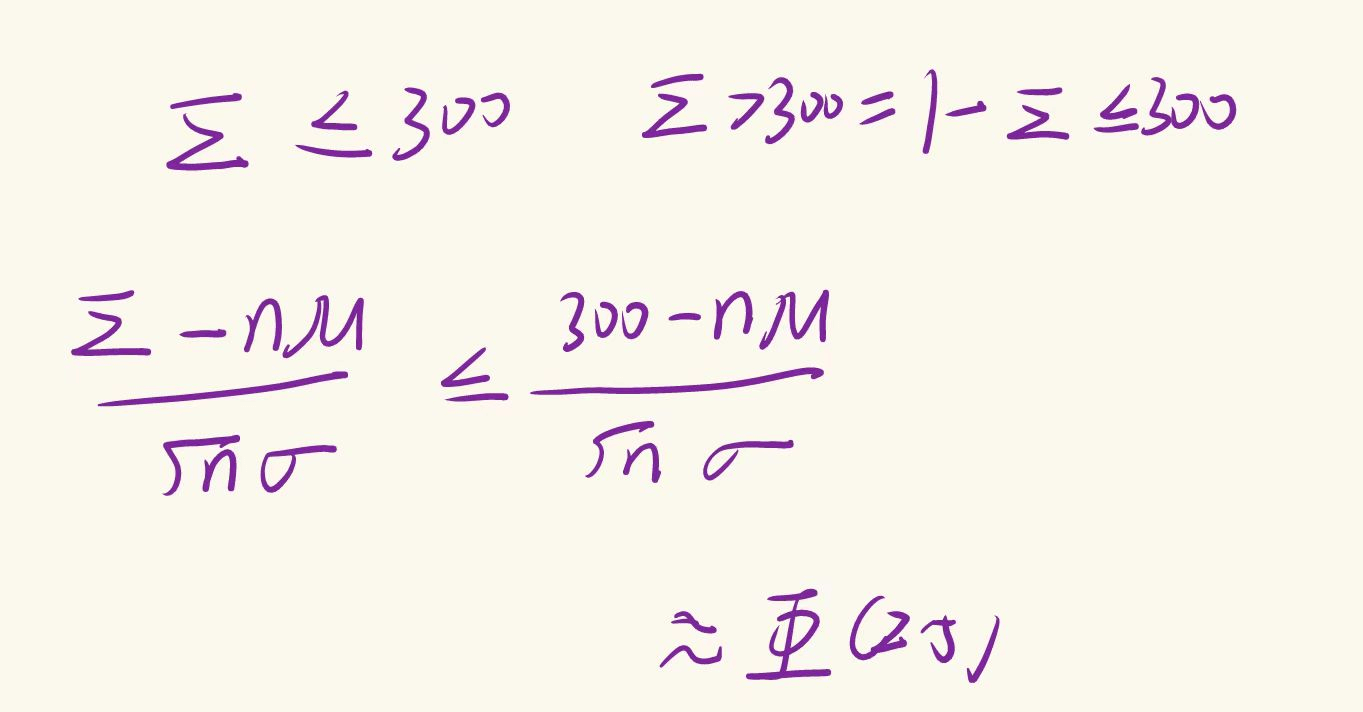 Σ ≤ 300 Σ > 300 = 1 - Σ ≤ 300
(Σ - nμ) / (√n σ) ≤ (300 - nμ) / (√n σ)
≈ Φ(25)